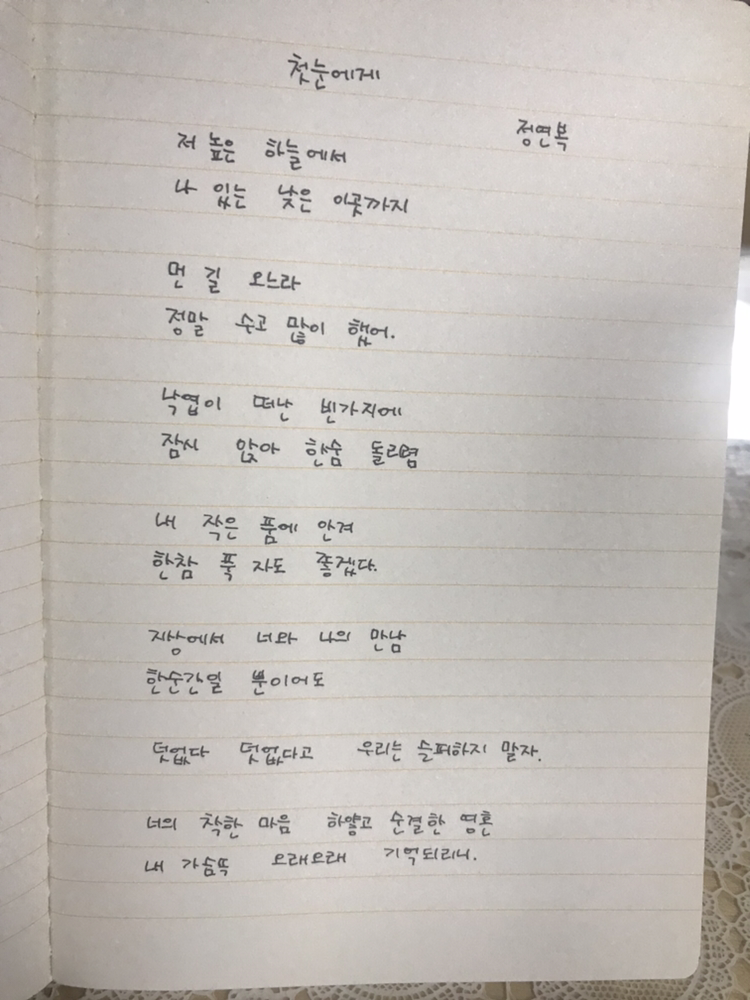 첫눈에게
정연복
저 높은 하늘에서
나 있는 낮은 이곳까지
먼 길 오느라
정말 수고 많이 했어.
낙엽이 떠난 빈가지에
잠시 앉아 한숨 돌리렴
내 작은 품에 안겨
한참 푹 자도 좋겠다.
지상에서 너와 나의 만남
한순간일 뿐이어도
덧없다 덧없다고 우리는 슬퍼하지 말자.
너의 착한 마음 하얗고 순결한 영혼
내 가슴뚝 오래오래 기억되리니.